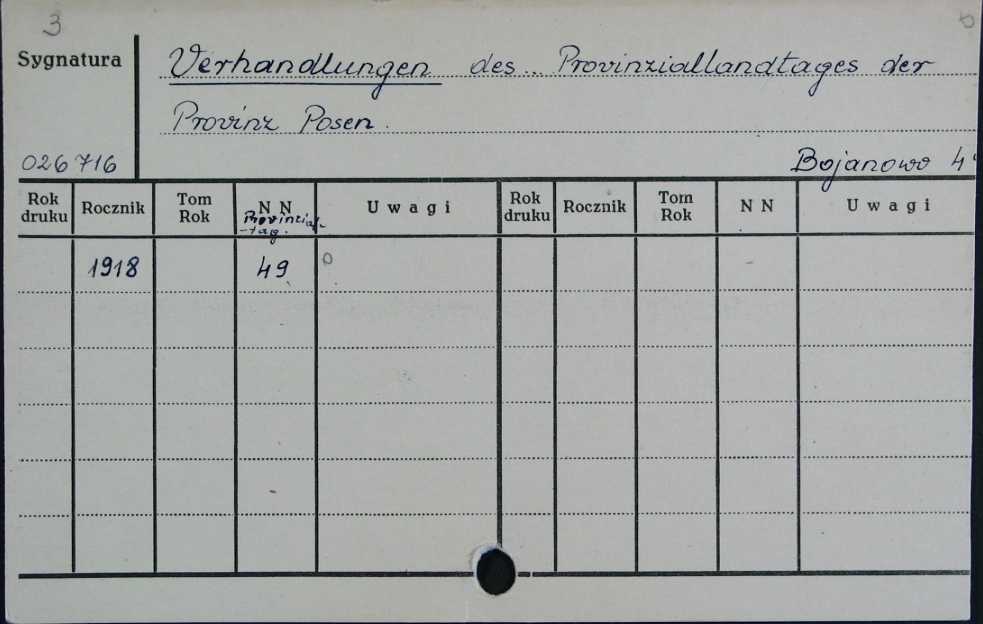 3
Sygnatura
Verhandlungen des... Provinziallandtages der
Provinz Posen.
026716
Bojanowo 4°
Rok druku Rocznik Tom Rok N N Uwagi Rok druku Rocznik Tom Rok N N Uwagi
Provinzial-
-tag.
1918 49